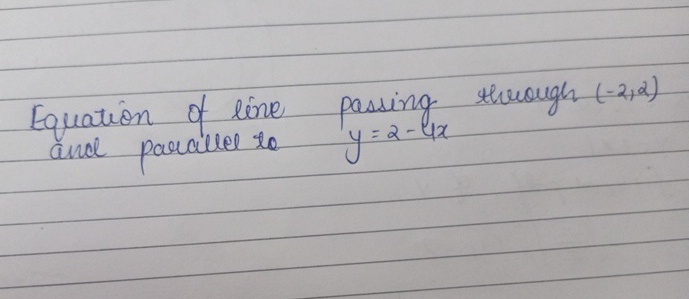 Equation of line passing through (-2,2)
and parallel to y = 2 - 4x